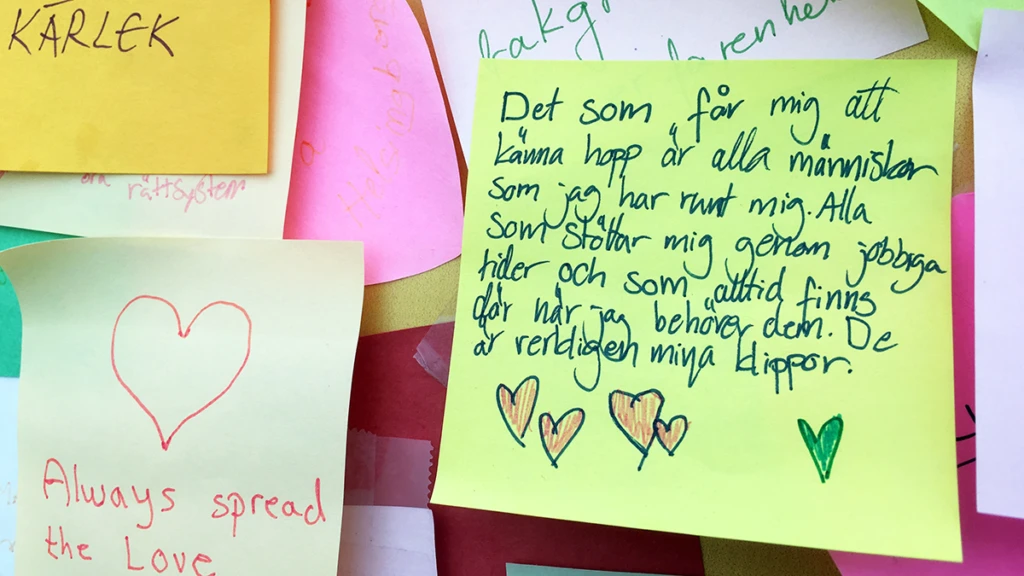 KÄRLEK
rättsystem
Always spread
the Love
Det som får mig att
känna hopp är alla människor
som jag har runt mig. Alla
som stöttar mig genom jobbiga
tider och som alltid finns
där när jag behöver dem. De
är verkligen mina klippor.